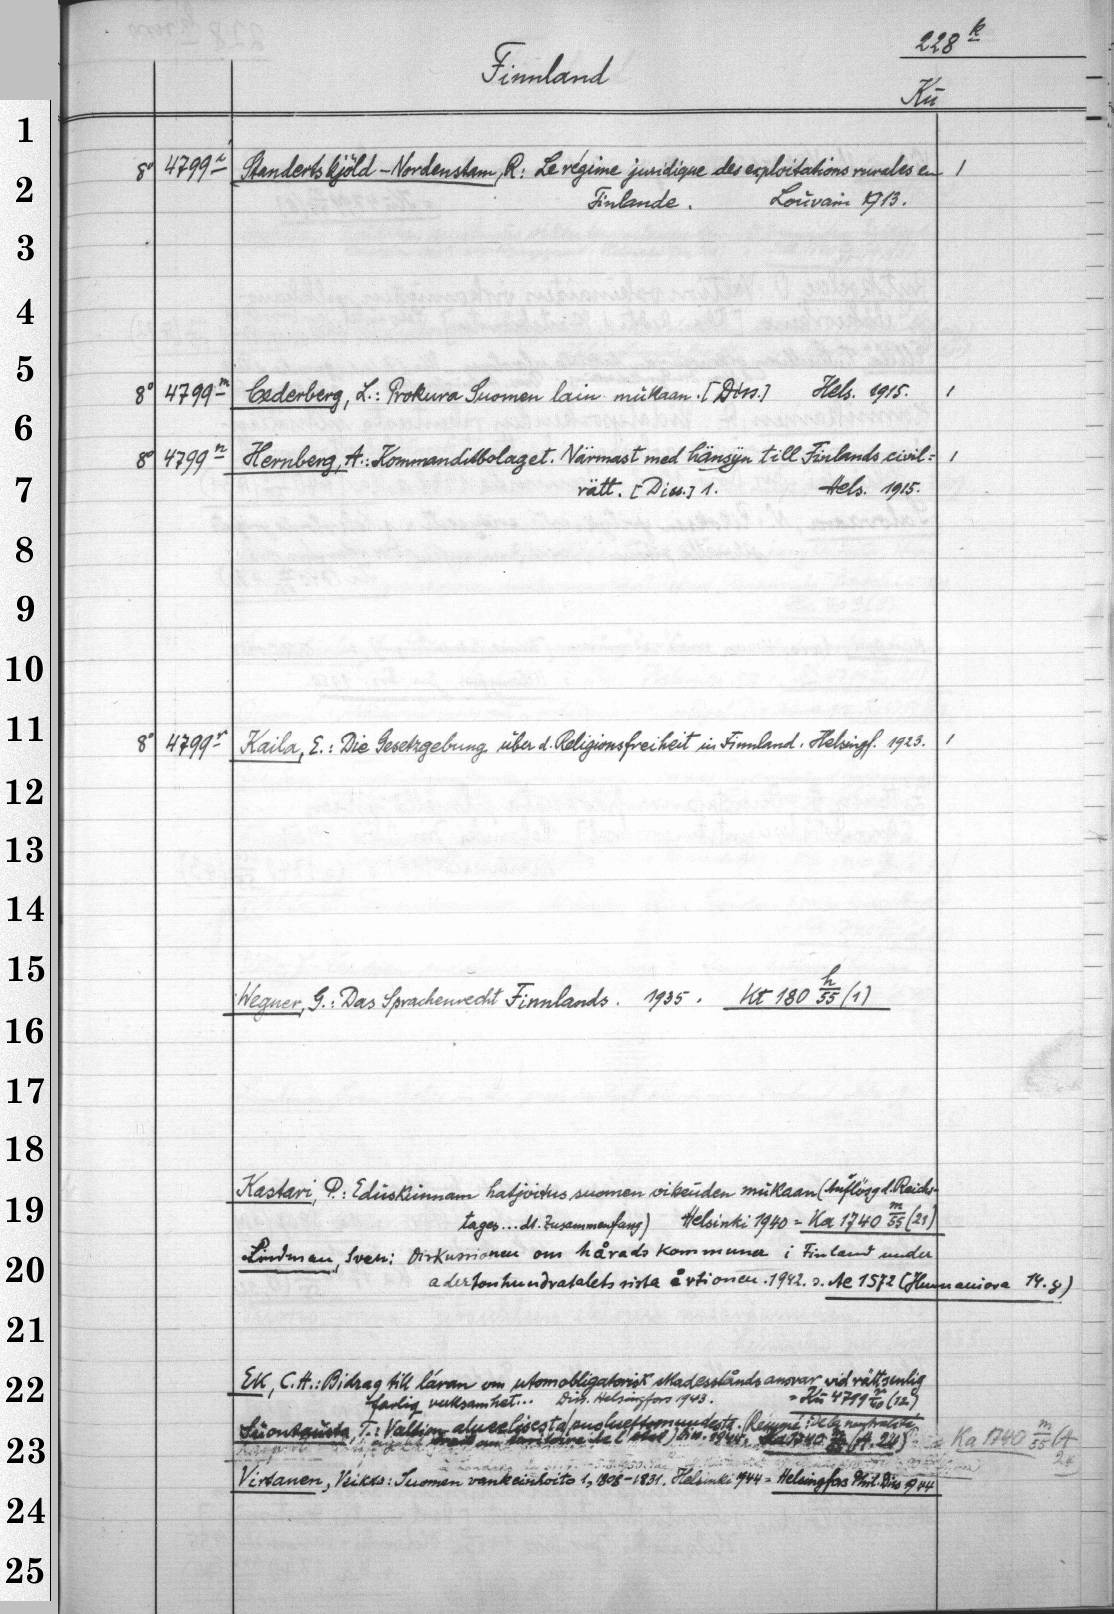 228 k
Finnland
Kü
1
8° 4799 i Standertskjöld-Nordenstam, R: Le régime juridique des exploitations rurales en 1
2
Finlande. Louvain 1913.
3
4
5
8° 4799 m Cederberg, L.: Prokura Suomen lain mukaan. [Diss.] Hels. 1915. 1
6
8° 4799 n Hernberg, A.: Kommanditbolaget. Närmast med hänsyn till Finlands civil= 1
7
rätt. [Diss.] 1. Hels. 1915.
8
9
10
11
8° 4799 r Kaila, E.: Die Gesetzgebung über d. Religionsfreiheit in Finnland. Helsingf. 1923. 1
12
13
14
15
Wegner, G.: Das Sprachenrecht Finnlands. 1935. Kt 180 h/55 (1)
16
17
18
Kastari, P.: Eduskunnan hajoitus suomen oikeuden mukaan (Auflösg d. Reichs-
19
tages... dt. Zusammenfang) Helsinki 1940 = Ka 1740 m/55 (21)
Lindman, Sven: Diskussionen om hårads kommuner i Finland under
20
adertonhundratalets sista årtionen. 1942. Ae 1572 (Humaniora 14. 8)
21
Ek, C.H.: Bidrag till läran om utomobligatorisk skadeståndsansvar vid rättsenlig
22
farlig verksamhet... Diss. Helsingfors 1943. = Kü 4799 (12)
T.: Valtion alueellisesta
23
Ka 1740 m/55 (A 24
Virtanen, Veikko: Suomen vankeinhoito 1, 1808-1831. Helsinki 944 = Helsingfors Phil. Diss 944
24
25